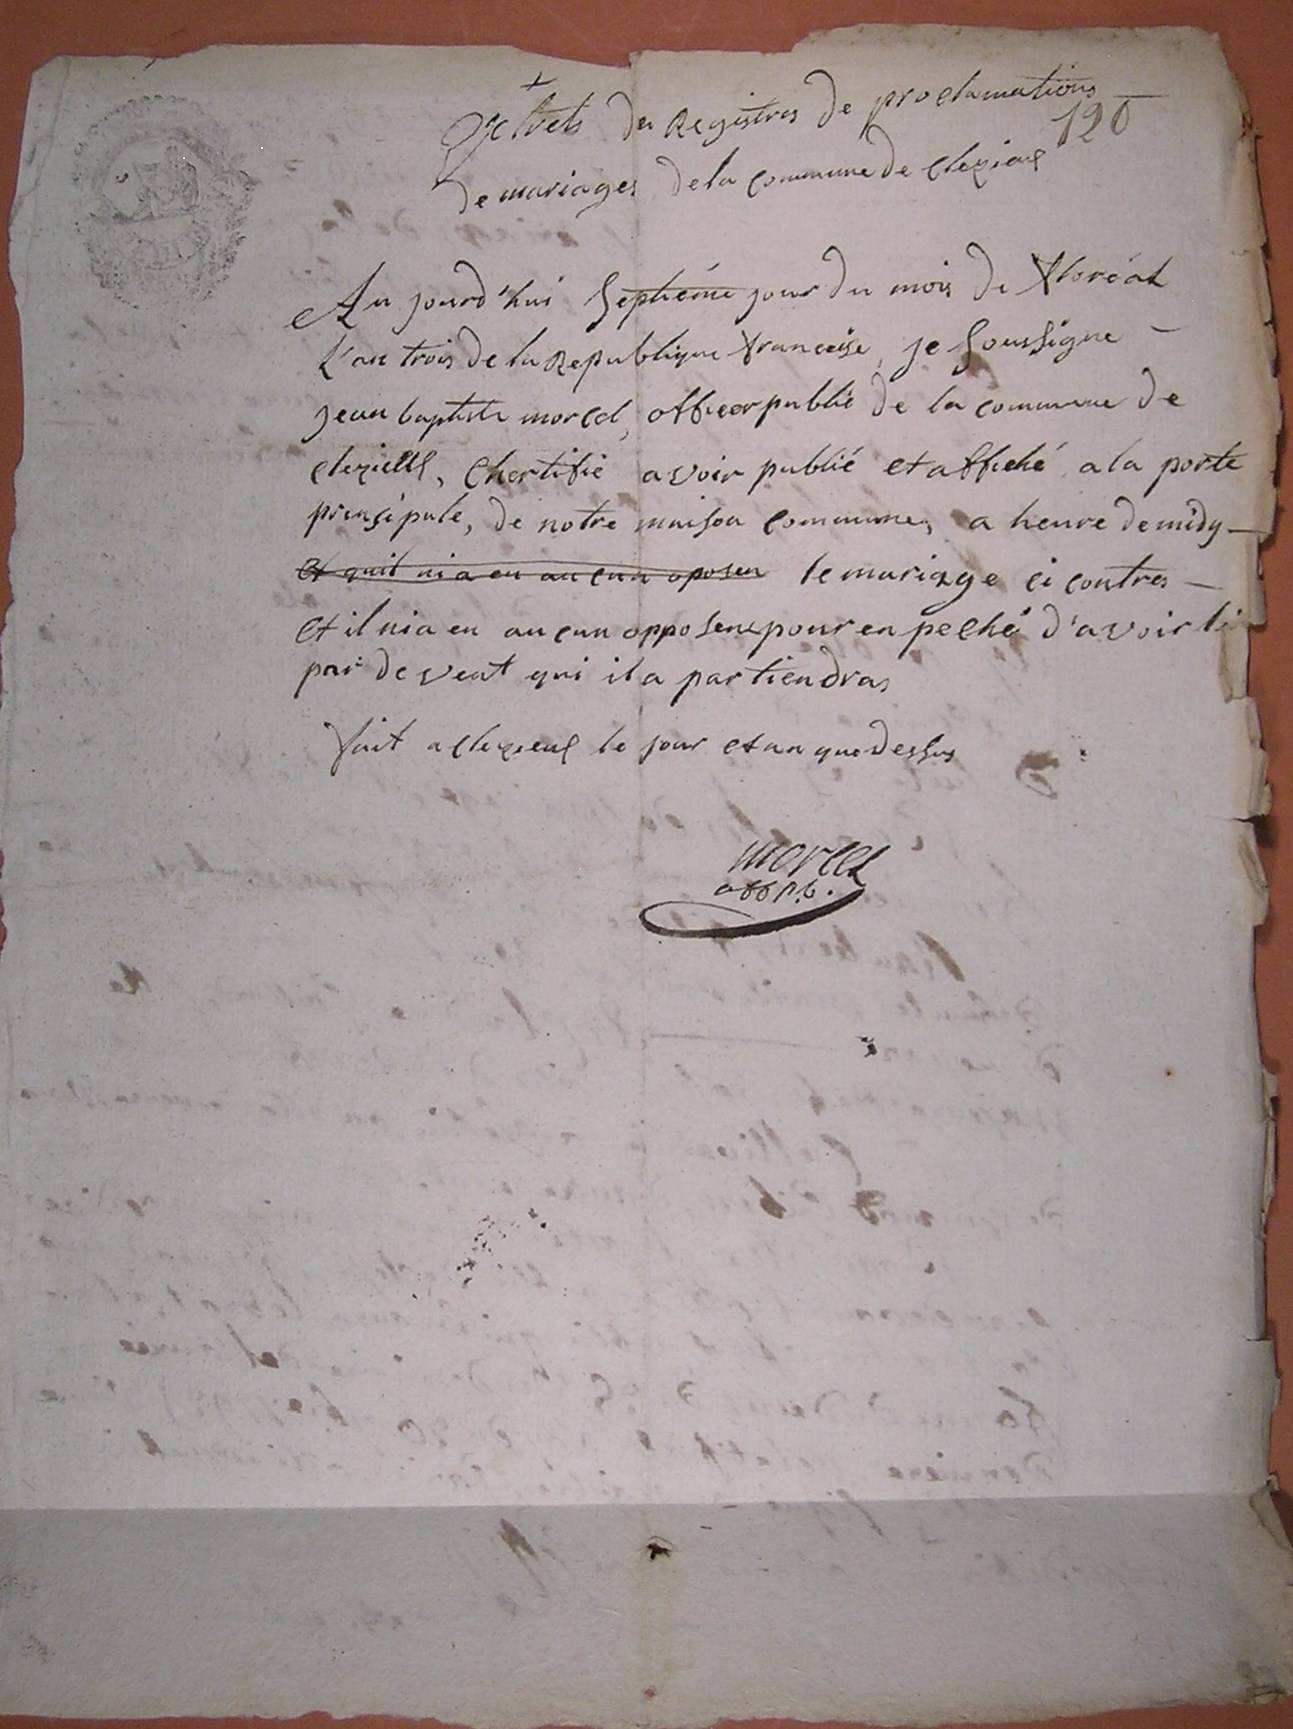 Extrets des Registres de proclamations
120
de mariages de la commune de clezieul
Au jourd'hui septiéme jour du mois de floréal
l'an trois de la Republique francoise, je soussigne
jean baptiste morel, officer public de la commune de
clezieul, Chertifie avoir publié et affiché a la porte
prinsipale, de notre maison commune, a heure de midy
et quil ni a eu aucun oposen le mariage ci contres
et il ni a eu aucun opposens pour en peché d'avoir li
par de vent qui il a partiendras
fait a clezieul le jour et an que dessus
morel
off p.b.